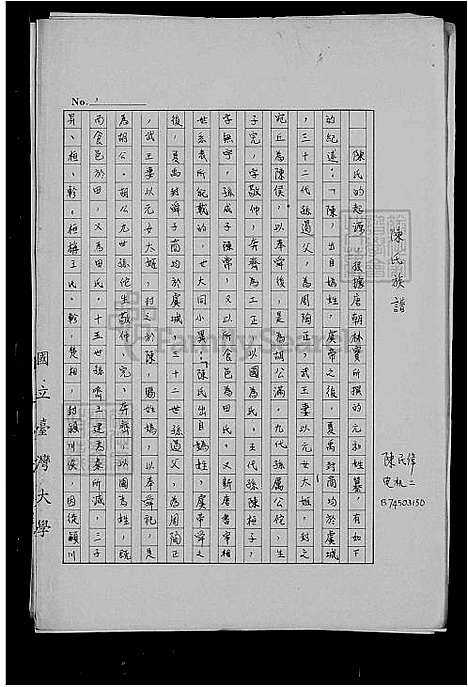 No. 1
陳氏族譜
陳民偉
電机二
B74503150
陳氏的起源,根據唐朝林寶所撰的元和姓纂,有如下
的紀述:「陳,出自媯姓,虞帝之後,夏禹封商均於虞城
,三十二代孫遏父,為周陶正,武王妻以元女大姬,封之
宛丘為陳侯,以奉舜後,是為胡公滿,九代孫厲公佗,生
子完,字敬仲,奔齊為工正,以國為氏,五代孫陳桓子,
字無宇,孫成子陳常,又以所食邑為田氏。又新唐書宰相
世系表所記載的,也大同小異:「陳氏出自媯姓,虞帝舜之
後,夏禹封舜子商均於虞城,三十二世孫遏父,為周陶正
,武王妻以元女大姬,封之於陳,賜姓媯,以奉舜祀,是
為胡公。胡公九世孫佗生敬仲,完,奔齊,以國為姓,既
而食邑於田,又為田氏。十五世孫齊王建為秦所滅,三子
昇、桓、軫。桓稱王氏。軫,楚相,封穎川侯,因徙穎川
國立臺灣大學
FamilySearch